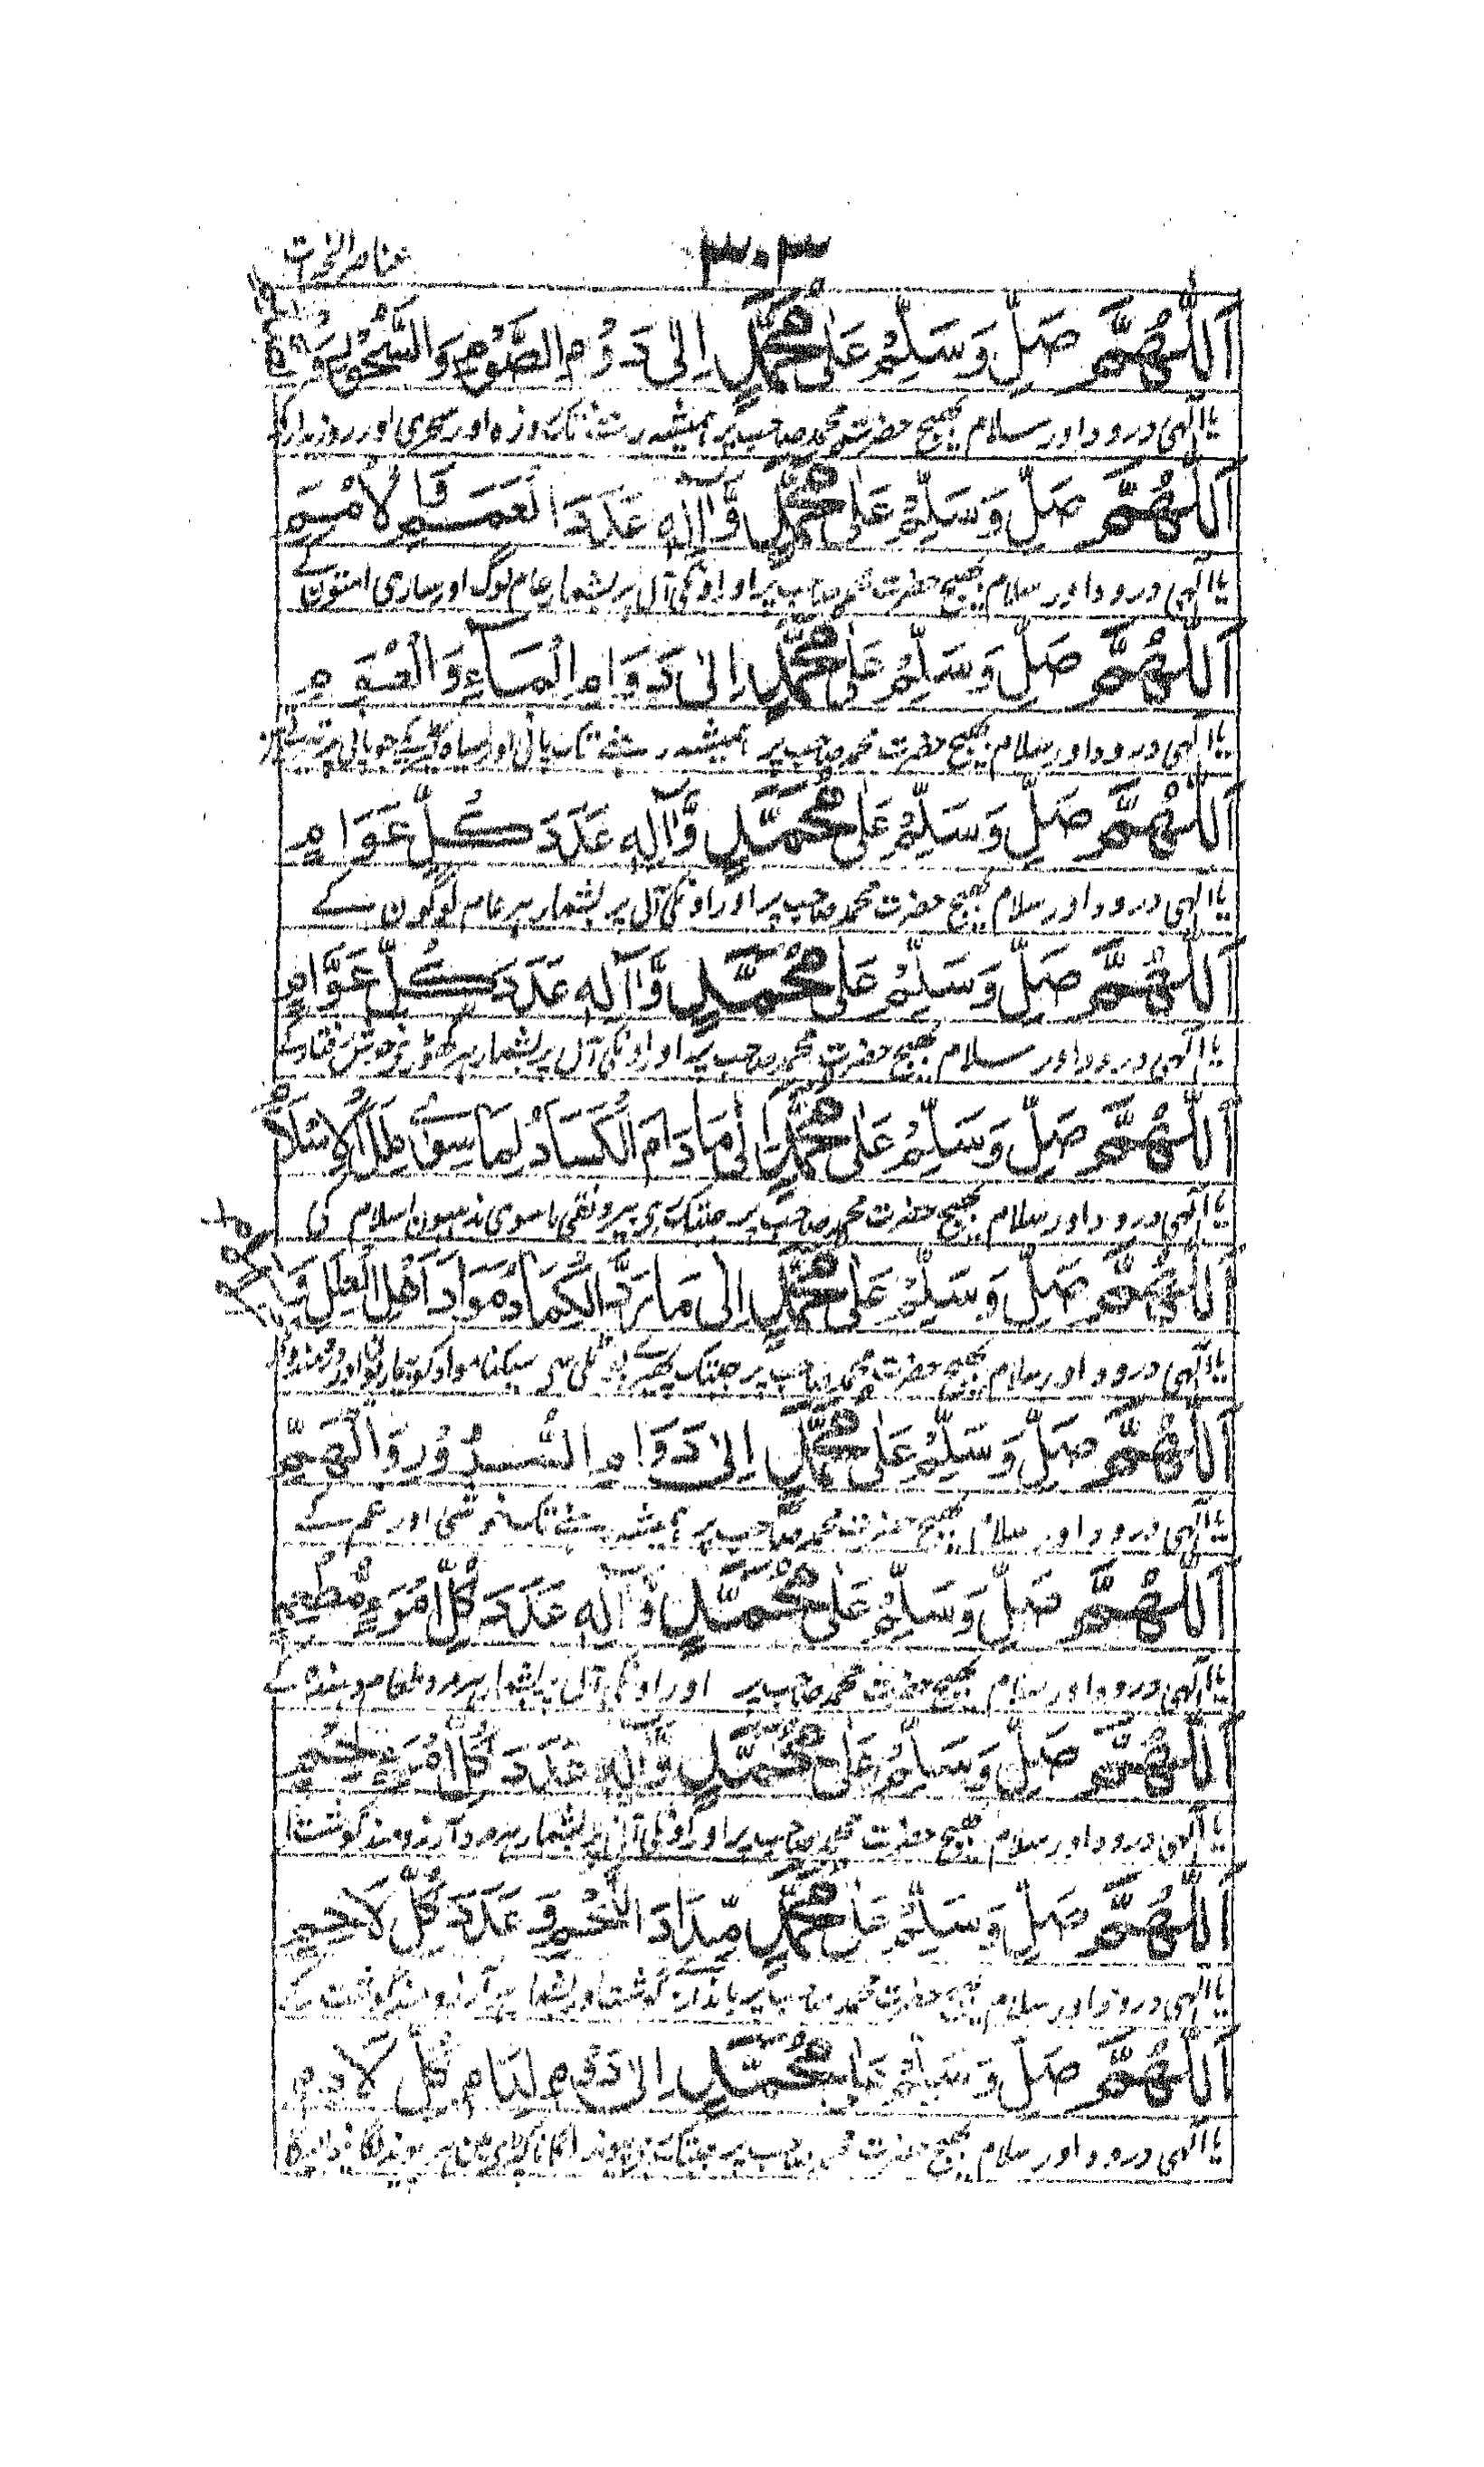 ٣٠٣
عناصر الخيرات
اَللّٰهُمَّ صَلِّ وَسَلِّمْ عَلٰى مُحَمَّدٍ اِلٰى دَوْمِ الصَّوْمِ وَالسَّحُوْرِ
یا الٰہی درود اور سلام بھیج حضرت محمد صاحب پر ہمیشہ رہنے تک روزہ اور سحری اور روزیدار کے
اَللّٰهُمَّ صَلِّ وَسَلِّمْ عَلٰى مُحَمَّدٍ وَّاٰلِهٖ عَدَدَ الْعَمَمِ وَالْاُمَمِ
یا الٰہی درود اور سلام بھیج حضرت محمد صاحب پر اور اونکی آل پر بشمار عام لوگ اور ساری امتون کے
اَللّٰهُمَّ صَلِّ وَسَلِّمْ عَلٰى مُحَمَّدٍ اِلٰى دَوَامِ الْمَاءِ وَالْعُوَّمِ
یا الٰہی درود اور سلام بھیج حضرت محمد صاحب پر ہمیشہ رہنے تک پانی اور سیاہ کیڑے جو پانی پر
اَللّٰهُمَّ صَلِّ وَسَلِّمْ عَلٰى مُحَمَّدٍ وَّاٰلِهٖ عَدَدَ كُلِّ عَوَامٍ
یا الٰہی درود اور سلام بھیج حضرت محمد صاحب پر اور اونکی آل پر بشمار ہر عام لوگون کے
اَللّٰهُمَّ صَلِّ وَسَلِّمْ عَلٰى مُحَمَّدٍ وَّاٰلِهٖ عَدَدَ كُلِّ عَوَّامٍ
یا الٰہی درود اور سلام بھیج حضرت محمد صاحب پر اور اونکی آل پر بشمار ہر گھوڑے خوش رفتار کے
اَللّٰهُمَّ صَلِّ وَسَلِّمْ عَلٰى مُحَمَّدٍ اِلٰى مَا دَامَ الْكَسَادُ لِمَا سِوٰى مِلَلِ الْاِسْلَامِ
یا الٰہی درود اور سلام بھیج حضرت محمد صاحب پر جبتک رہے بیرونقی ماسوی مذہبون اسلام کی
اَللّٰهُمَّ صَلِّ وَسَلِّمْ عَلٰى مُحَمَّدٍ اِلٰى مَا رَدَّ الْكِمَادُ مَوَادَ اَهْلِ الْعِلَلِ
یا الٰہی درود اور سلام بھیج حضرت محمد صاحب پر جبتک پھیرے سیکنا مواد کو
اَللّٰهُمَّ صَلِّ وَسَلِّمْ عَلٰى مُحَمَّدٍ اِلٰى دَوَامِ السُّرُوْرِ وَالْهَمِّ
یا الٰہی درود اور سلام بھیج حضرت محمد صاحب پر ہمیشہ رہنے تک خوشی اور غم کے
اَللّٰهُمَّ صَلِّ وَسَلِّمْ عَلٰى مُحَمَّدٍ وَّاٰلِهٖ عَدَدَ كُلِّ امْرَءٍ مُطْعِمٍ
یا الٰہی درود اور سلام بھیج حضرت محمد صاحب پر اور اونکی آل پر بشمار ہر مرد طعام دہندہ کے
اَللّٰهُمَّ صَلِّ وَسَلِّمْ عَلٰى مُحَمَّدٍ وَّاٰلِهٖ عَدَدَ كُلِّ امْرَءٍ لَحِمٍ
یا الٰہی درود اور سلام بھیج حضرت محمد صاحب پر اور اونکی آل پر بشمار ہر مرد آرزومند گوشت
اَللّٰهُمَّ صَلِّ وَسَلِّمْ عَلٰى مُحَمَّدٍ مِّدَادَ اللَّحْمِ وَعَدَدَ كُلِّ لَاحِمٍ
یا الٰہی درود اور سلام بھیج حضرت محمد صاحب پر باندازہ گوشت اور بشمار ہر آرزومند گوشت کے
اَللّٰهُمَّ صَلِّ وَسَلِّمْ عَلٰى مُحَمَّدٍ اِلٰى لِدَامِ كُلِّ لَادِمٍ
یا الٰہی درود اور سلام بھیج حضرت محمد صاحب پر جبتک پیوند